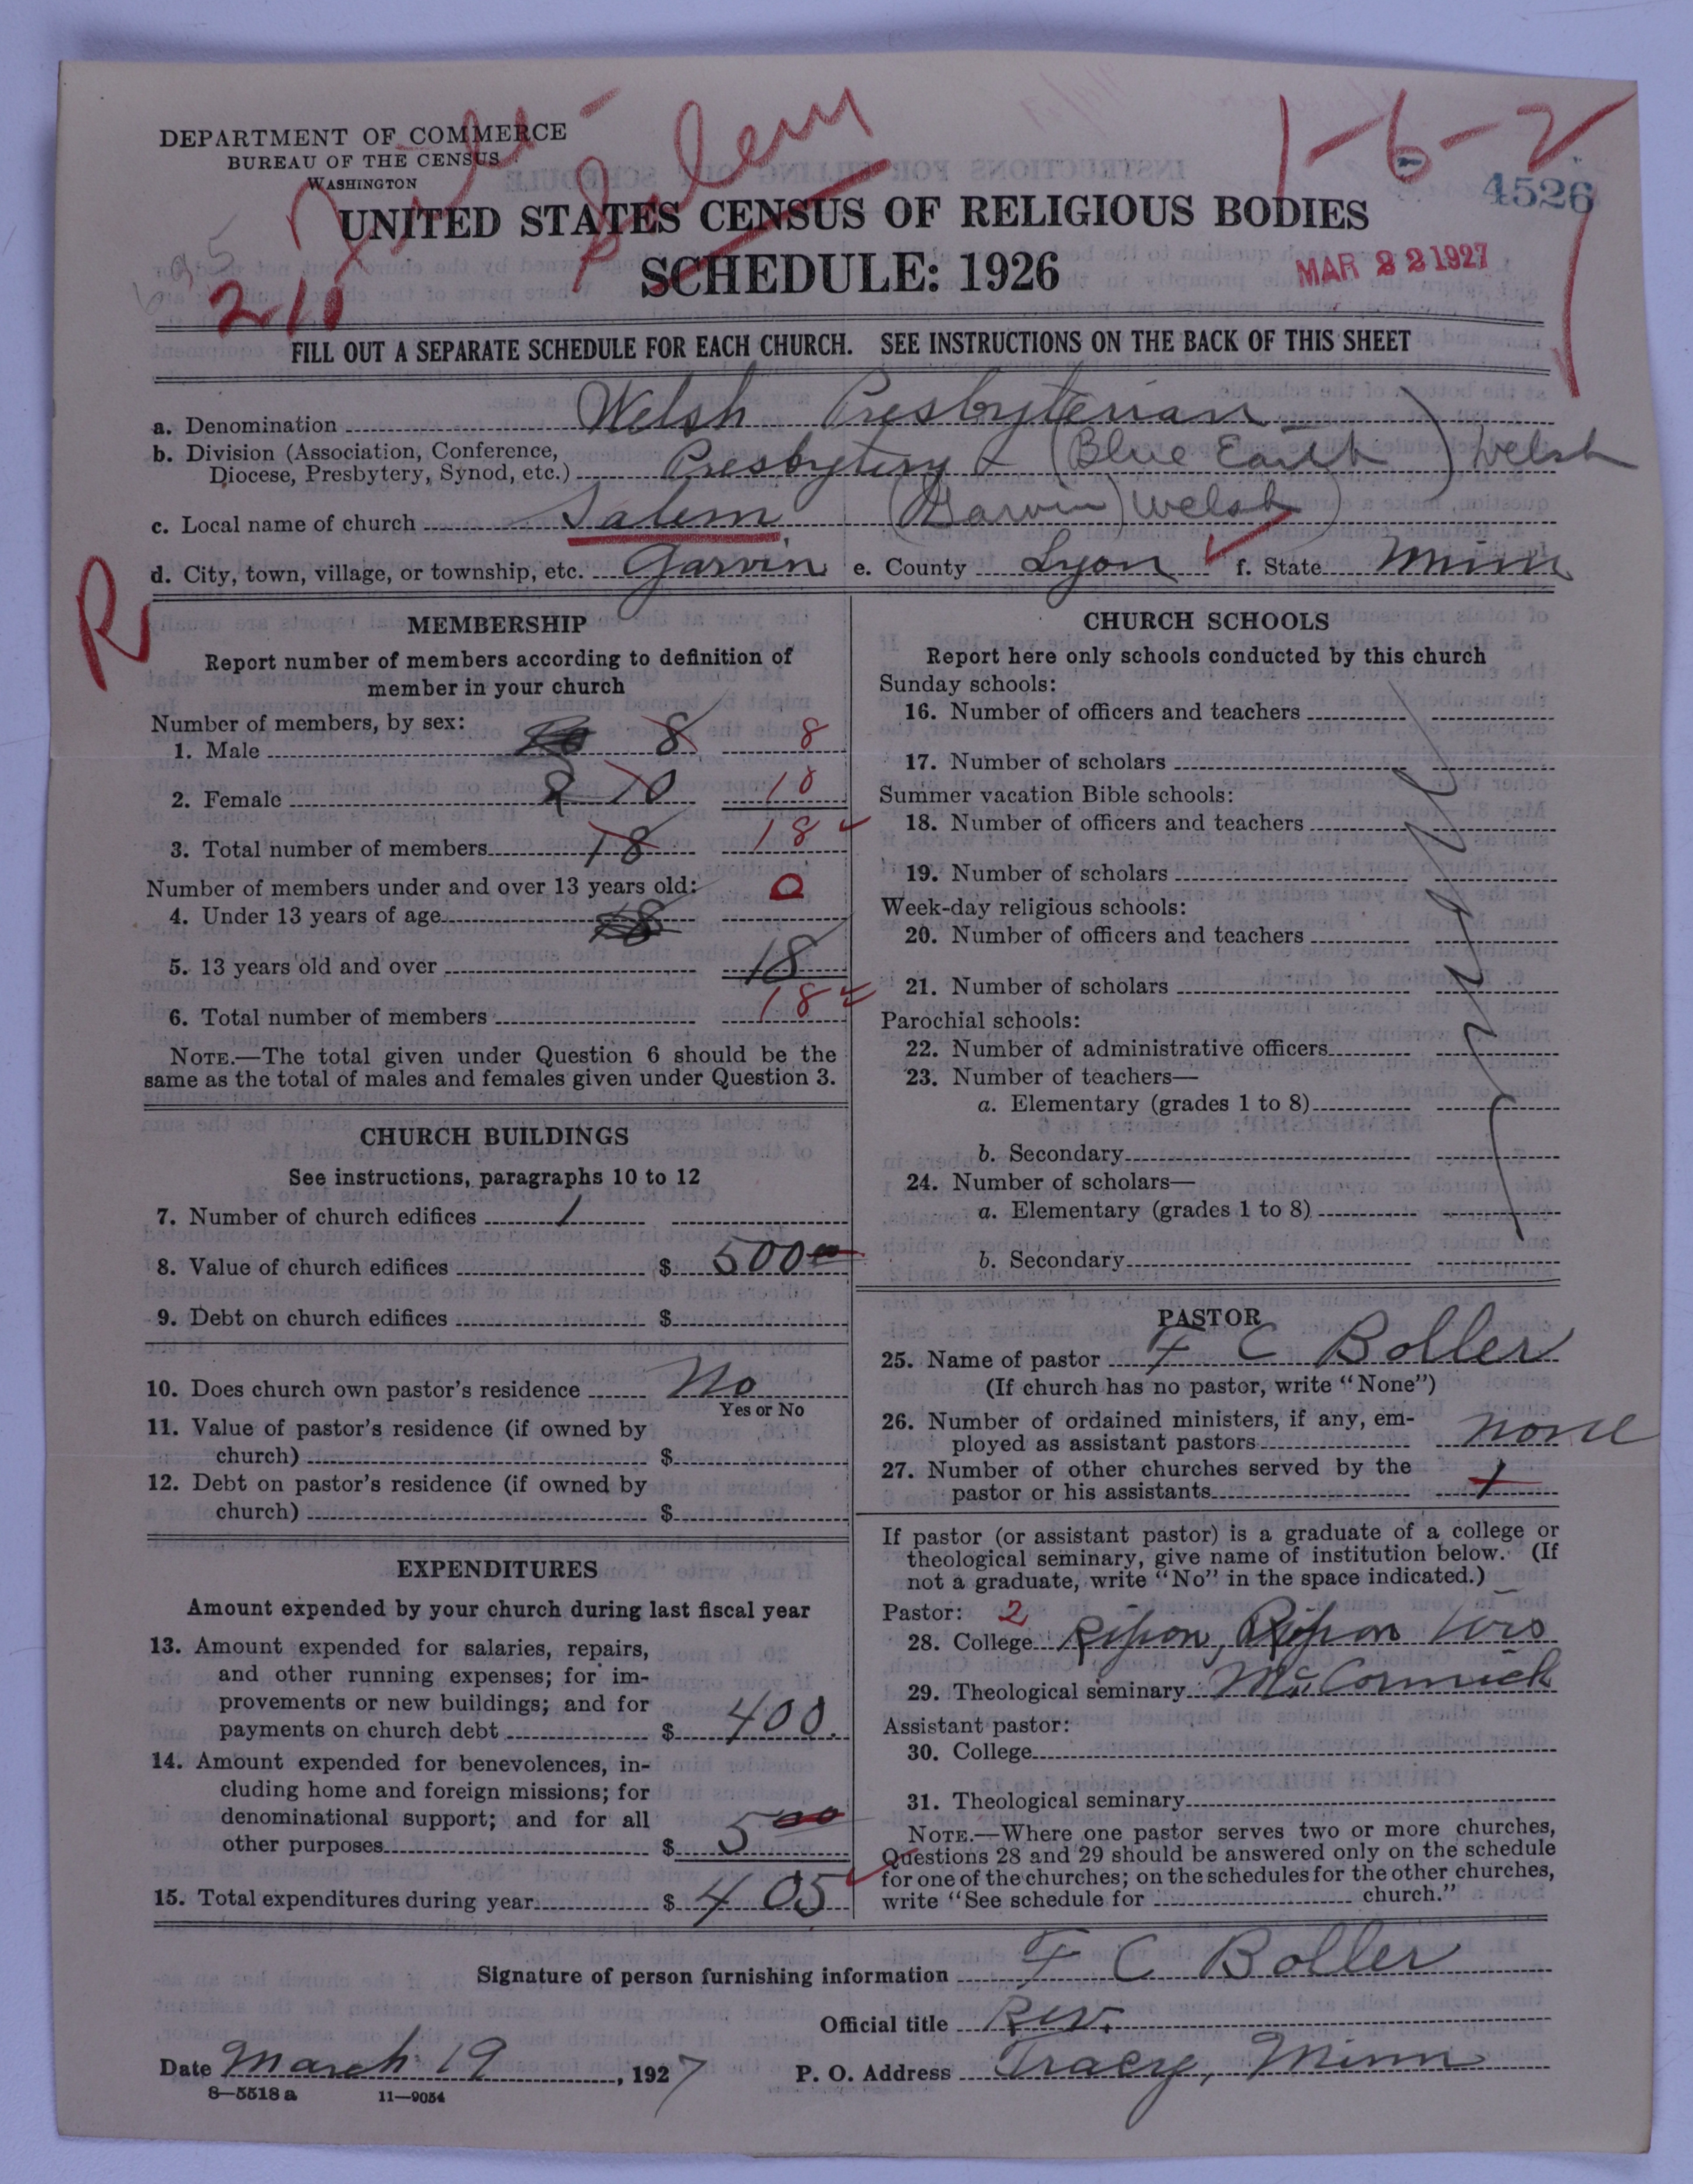 DEPARTMENT OF COMMERCE
BUREAU OF THE CENSUS
WASHINGTON
Salem
1-6-2
4526
UNITED STATES CENSUS OF RELIGIOUS BODIES
SCHEDULE: 1926
MAR 22 1927
210
FILL OUT A SEPARATE SCHEDULE FOR EACH CHURCH. SEE INSTRUCTIONS ON THE BACK OF THIS SHEET
a. Denomination Welsh Presbyterian
b. Division (Association, Conference,
Diocese, Presbytery, Synod, etc.) Presbytery (Blue Earth) Welsh
c. Local name of church Salem (Garvin) Welsh
d. City, town, village, or township, etc. Garvin e. County Lyon f. State Minn
R
MEMBERSHIP
Report number of members according to definition of
member in your church
Number of members, by sex:
1. Male 8 8
2. Female 10 10
3. Total number of members 18 18
Number of members under and over 13 years old:
4. Under 13 years of age 0
5. 13 years old and over 18
6. Total number of members 18
NOTE.—The total given under Question 6 should be the
same as the total of males and females given under Question 3.
CHURCH BUILDINGS
See instructions, paragraphs 10 to 12
7. Number of church edifices 1
8. Value of church edifices $ 500 00
9. Debt on church edifices $
10. Does church own pastor's residence No
Yes or No
11. Value of pastor's residence (if owned by
church) $
12. Debt on pastor's residence (if owned by
church) $
EXPENDITURES
Amount expended by your church during last fiscal year
13. Amount expended for salaries, repairs,
and other running expenses; for im-
provements or new buildings; and for
payments on church debt $ 400.
14. Amount expended for benevolences, in-
cluding home and foreign missions; for
denominational support; and for all
other purposes $ 5 00
15. Total expenditures during year $ 405
CHURCH SCHOOLS
Report here only schools conducted by this church
Sunday schools:
16. Number of officers and teachers
17. Number of scholars
Summer vacation Bible schools:
18. Number of officers and teachers
19. Number of scholars
Week-day religious schools:
20. Number of officers and teachers
21. Number of scholars
Parochial schools:
22. Number of administrative officers
23. Number of teachers—
a. Elementary (grades 1 to 8)
b. Secondary
24. Number of scholars—
a. Elementary (grades 1 to 8)
b. Secondary
PASTOR
25. Name of pastor F C Boller
(If church has no pastor, write "None")
26. Number of ordained ministers, if any, em-
ployed as assistant pastors none
27. Number of other churches served by the
pastor or his assistants 1
If pastor (or assistant pastor) is a graduate of a college or
theological seminary, give name of institution below. (If
not a graduate, write "No" in the space indicated.)
Pastor: 2
28. College Ripon, Ripon Wis
29. Theological seminary McCormick
Assistant pastor:
30. College
31. Theological seminary
NOTE.—Where one pastor serves two or more churches,
Questions 28 and 29 should be answered only on the schedule
for one of the churches; on the schedules for the other churches,
write "See schedule for church."
Signature of person furnishing information F C Boller
Official title Rev.
Date March 19, 1927 P. O. Address Tracy, Minn
8—5518 a 11—9054